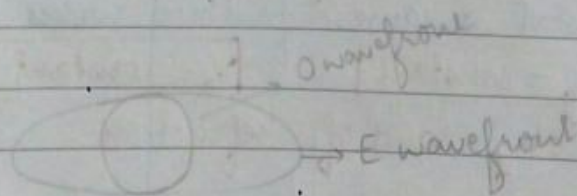 O wavefront
E wavefront